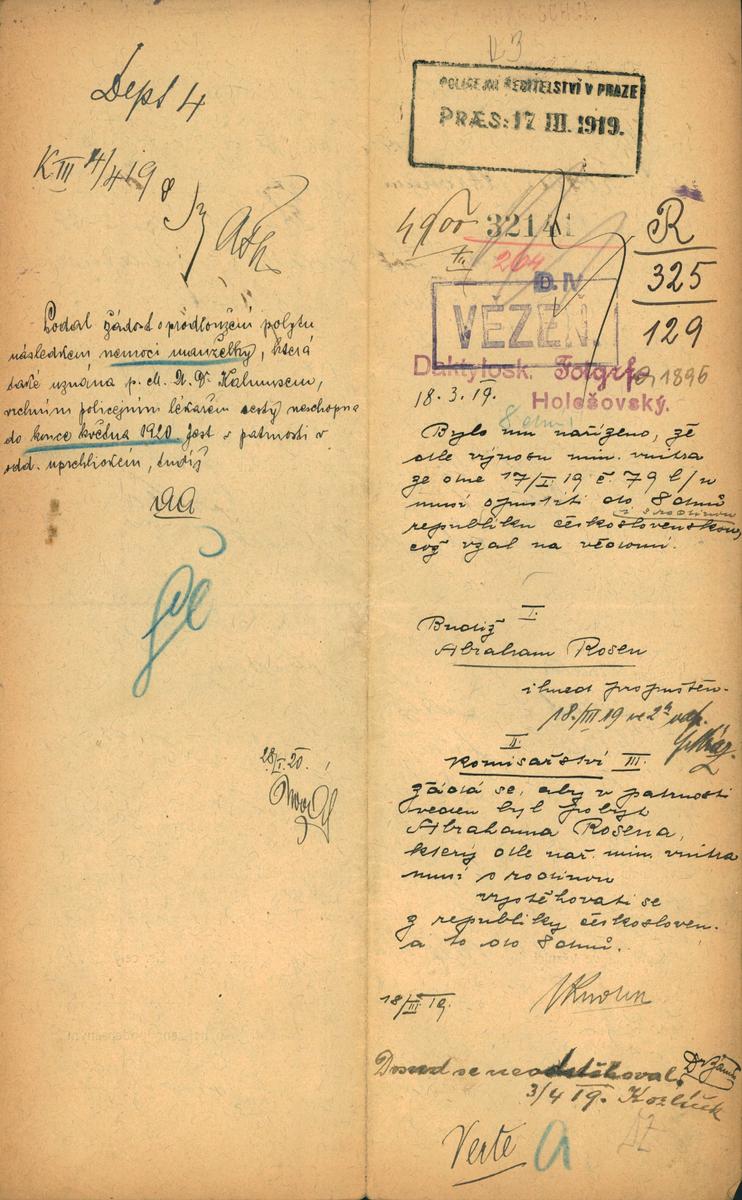 Dept 4
K III 4/4 19
Podal žádost o prodloužení pobytu
následkem nemoci manželky, která
také uznána p. M. D. Dr. Kalmusem,
vrchním policejním lékařem cesty neschopna
do konce května 1920. Jest v patrnosti v
odd. uprchlickém, tudíž
aa
28/I. 20.
V3
POLICEJNÍ ŘEDITELSTVÍ V PRAZE
PRÆS: 17 III. 1919.
32141
264
R
325
129
D. IV
VĚZEŇ.
Daktylosk. Fotgrf.
1896
Holešovský.
18.3.19.
8 dnů
Bylo mu nařízeno, že
dle výnosu min. vnitra
ze dne 17/I. 19 č. 79 l/n
musí opustiti do 8 dnů
i s rodinou
republiku československou,
což vzal na vědomí.
I.
Budiž
Abraham Rosen
ihned propuštěn.
18./III 19 ve 2h odp.
II.
Komisařství III.
žádá se, aby v patrnosti
veden byl pobyt
Abrahama Rosena,
který dle nař. min. vnitra
musí s rodinou
vystěhovati se
z republiky českosloven.
a to do 8 dnů.
18/III 19.
Dosud se neodstěhoval.
3/4 19. Kozlíček
Verte